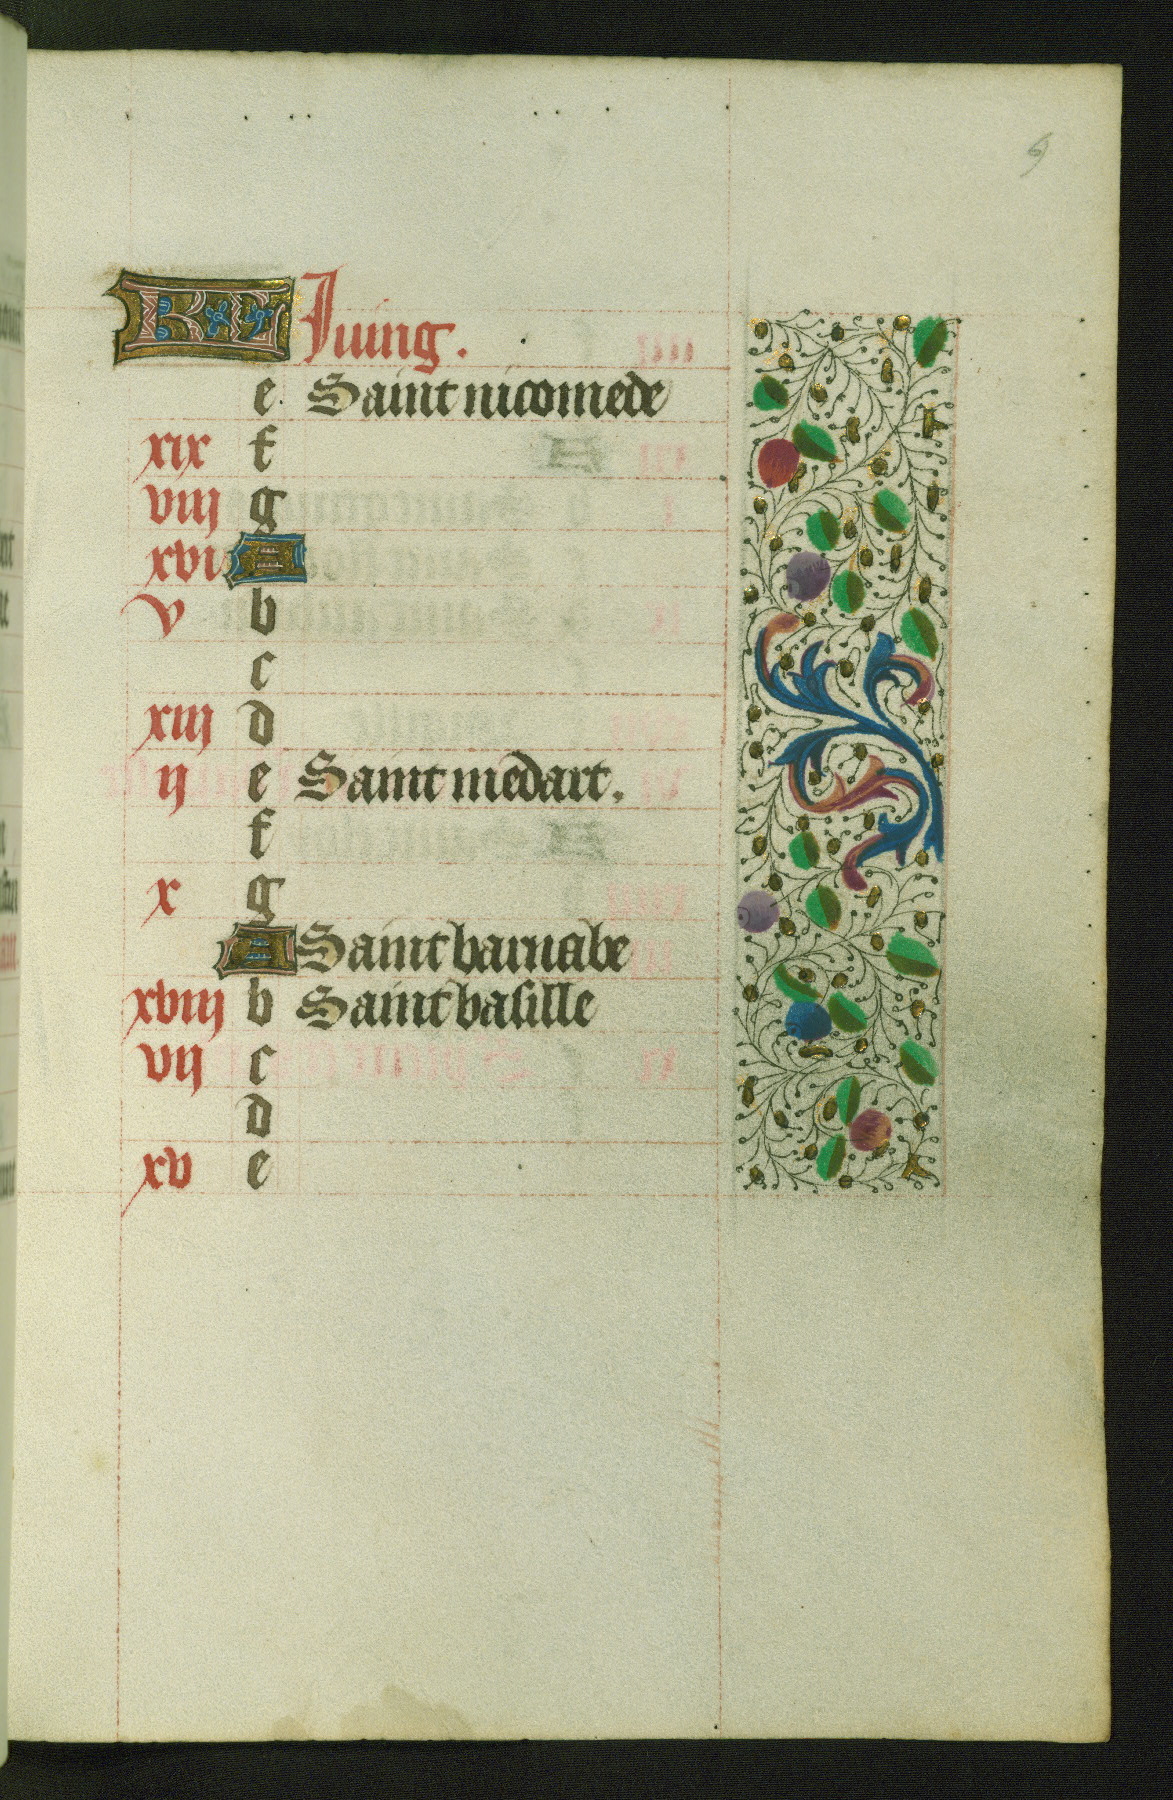 6
KL Juing.
e. Saint nicomede
xix f
viij g
xvi A
v b
c
xiij d
ij e Saint medart.
f
x g
A Saint barnabe
xviij b Saint basille
vij c
d
xv e